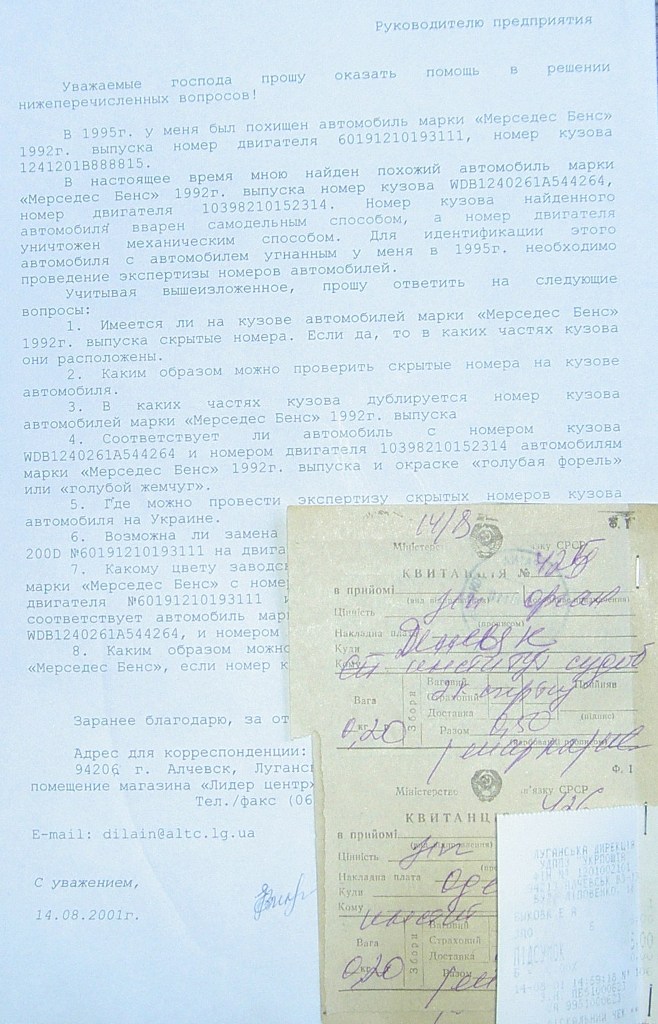 Руководителю предприятия
Уважаемые господа прошу оказать помощь в решении
нижеперечисленных вопросов!
В 1995г. у меня был похищен автомобиль марки «Мерседес Бенс»
1992г. выпуска номер двигателя 60191210193111, номер кузова
1241201В888815.
В настоящее время мною найден похожий автомобиль марки
«Мерседес Бенс» 1992г. выпуска номер кузова WDB1240261A544264,
номер двигателя 10398210152314. Номер кузова найденного
автомобиля вварен самодельным способом, а номер двигателя
уничтожен механическим способом. Для идентификации этого
автомобиля с автомобилем угнанным у меня в 1995г. необходимо
проведение экспертизы номеров автомобилей.
Учитывая вышеизложенное, прошу ответить на следующие
вопросы:
1. Имеется ли на кузове автомобилей марки «Мерседес Бенс»
1992г. выпуска скрытые номера. Если да, то в каких частях кузова
они расположены.
2. Каким образом можно проверить скрытые номера на кузове
автомобиля.
3. В каких частях кузова дублируется номер кузова
автомобилей марки «Мерседес Бенс» 1992г. выпуска
4. Соответствует ли автомобиль с номером кузова
WDB1240261A544264 и номером двигателя 10398210152314 автомобилям
марки «Мерседес Бенс» 1992г. выпуска и окраске «голубая форель»
или «голубой жемчуг».
5. Где можно провести экспертизу скрытых номеров кузова
автомобиля на Украине.
6. Возможна ли замена
200D №60191210193111 на двига
7. Какому цвету заводс
марки «Мерседес Бенс» с номе
двигателя №60191210193111 и
соответствует автомобиль мар
WDB1240261A544264, и номером
8. Каким образом можно
«Мерседес Бенс», если номер к
Заранее благодарю, за от
Адрес для корреспонденции:
94206 г. Алчевск, Луганс
помещение магазина «Лидер центр»
Тел./факс (06
E-mail: dilain@altc.lg.ua
С уважением,
14.08.2001г.
14/8
Міністерс зв'язку СРСР
КВИТАНЦІЯ №
в прийомі
Цінність
Накладна плата
Кули
Кому
Вага
Збори
Ваговий
Страховий
Доставка
Разом
Прийняв
(підпис)
0,20
0,50
Ф. 1
Міністерство зв'язку СРСР
КВИТАНЦ
426
в прийомі
Цінність
Накладна плата
Кули
Кому
Вага
Збори
Ваговий
Страховий
Доставка
Разом
0,20
ЛУГАНСЬКА ДИРЕКЦІЯ
УДППЗ УКРПОШТА
ПІДСУМОК